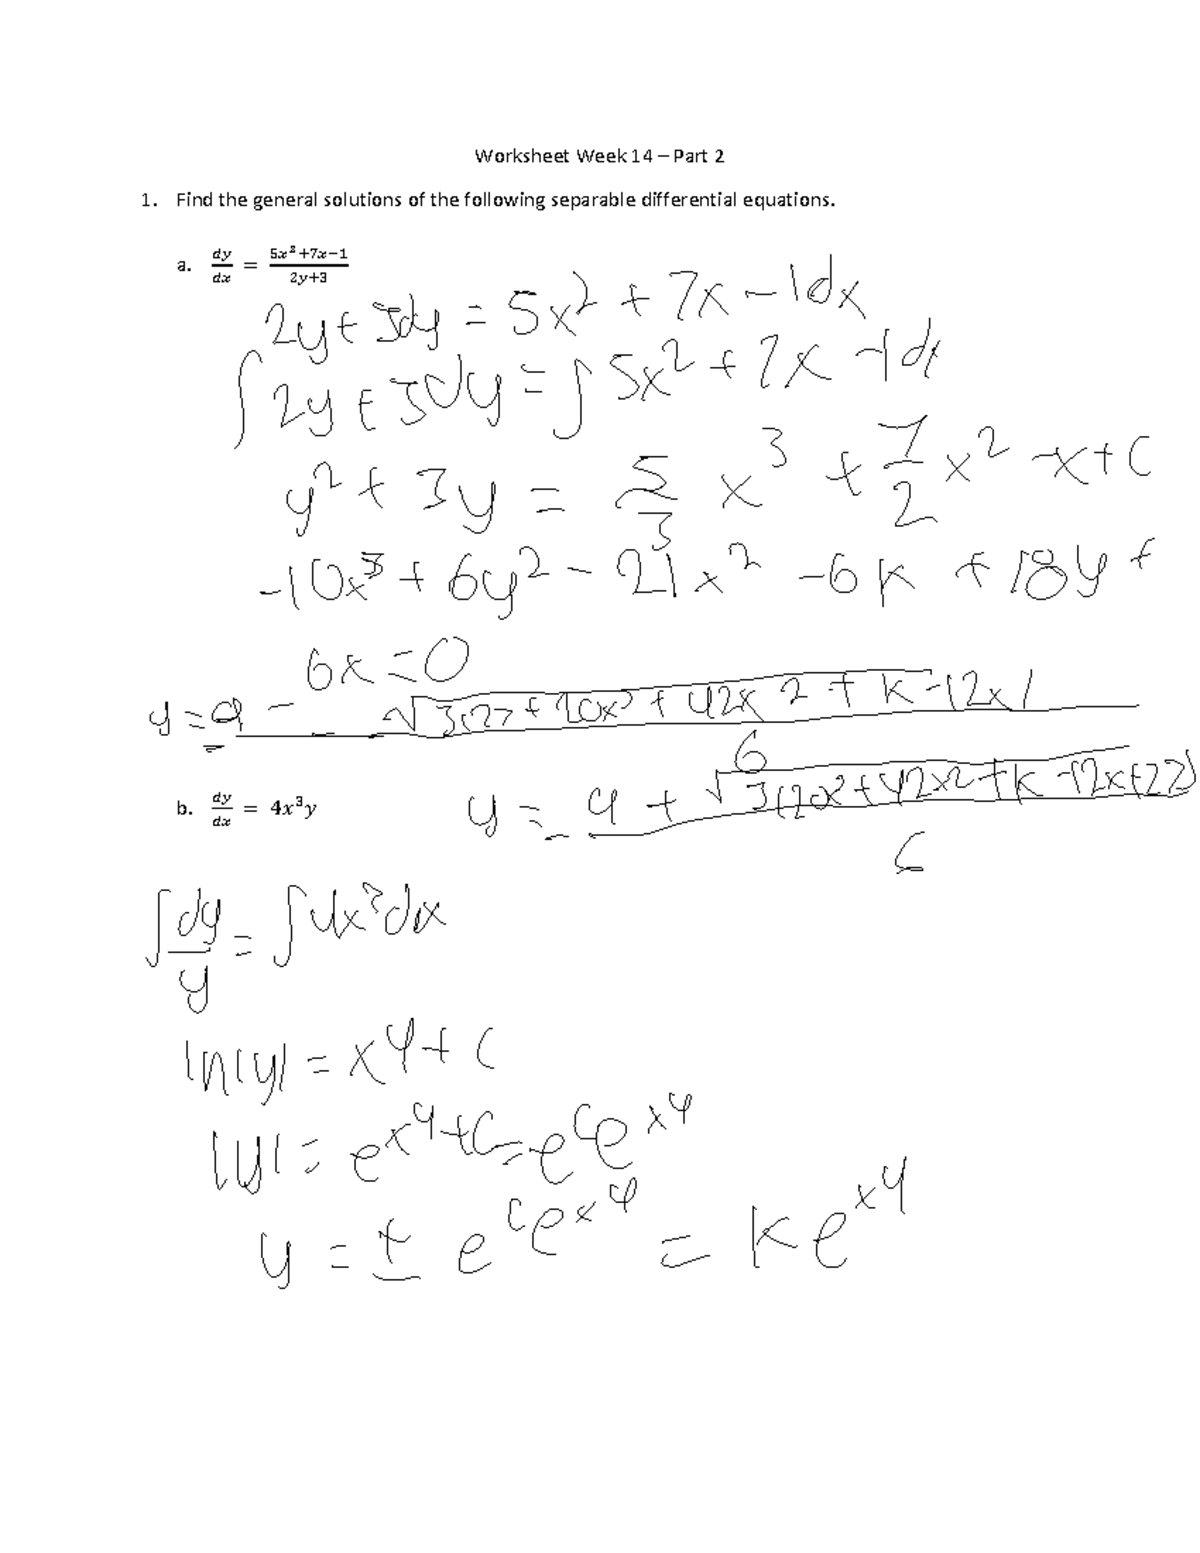 Worksheet Week 14 – Part 2
1. Find the general solutions of the following separable differential equations.
a. dy/dx = (5x²+7x−1)/(2y+3)
2y+3dy = 5x² + 7x − 1dx
∫2y+3dy = ∫5x² + 7x − 1dx
y² + 3y = 5/3 x³ + 7/2 x² − x + C
-10x³ + 6y² − 21x² − 6k + 18y +
6x = 0
y =
6
b. dy/dx = 4x³y
y =
6
∫dy/y = ∫4x³dx
ln|y| = x⁴ + C
|y| = e^(x⁴+C) = e^C e^(x⁴)
y = ± e^C e^(x⁴) = ke^(x⁴)